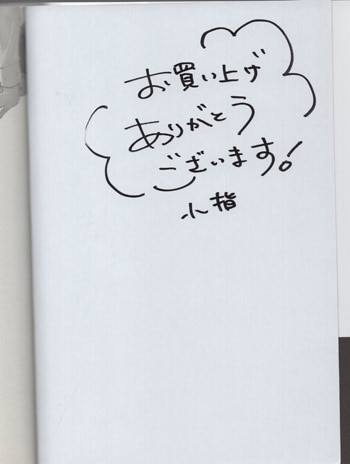 お買い上げ
ありがとう
ございます!
小指